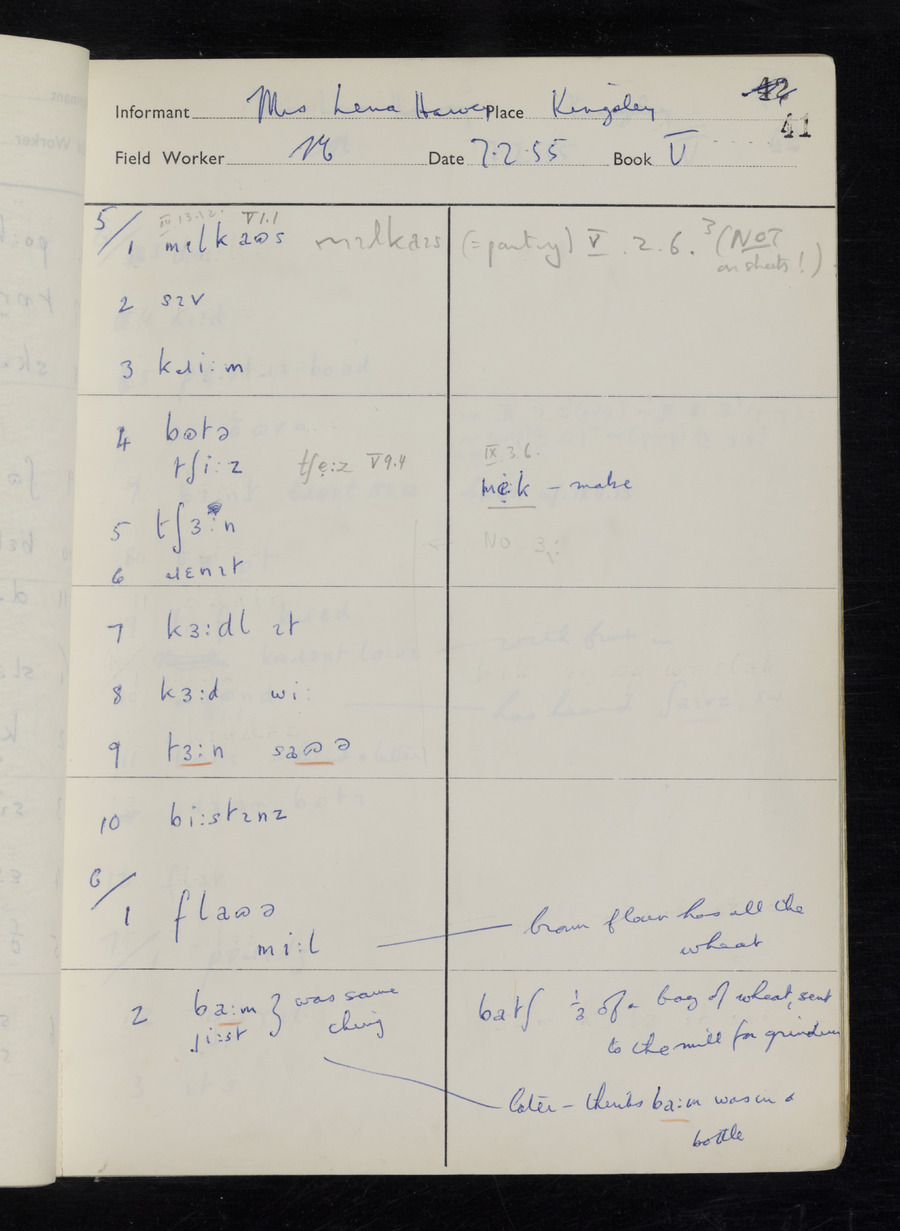 42
41
Informant Mrs Lena Harvey Place Kingsley
Field Worker Date 7.2.55 Book V
5/ IV 13.12. V 1.1
1 mɪlk aɷs mɪlkaɪs (= pantry) V . 2. 6. 3 (NOT
on sheets!)
2 sɪv
3 kɹi:m
4 bɷtə
tʃi:z tʃe̝:z V 9.4
IX 3.6.
me̝:k – make
5 tʃɜ:n
NO ɜ:
6 ɹɛnɪt
7 kɜ:dl ɪt
8 kɜ:d wi:
9 tɜ:n saɷə
10 bi:stɪnz
6/
1 flaɷə
mi:l brown flour has all the
wheat
2 ba:m } was same
ji:st thing
batʃ 1/3 of a bag of wheat, sent
to the mill for grinding
later – thinks ba:m was in a
bottle